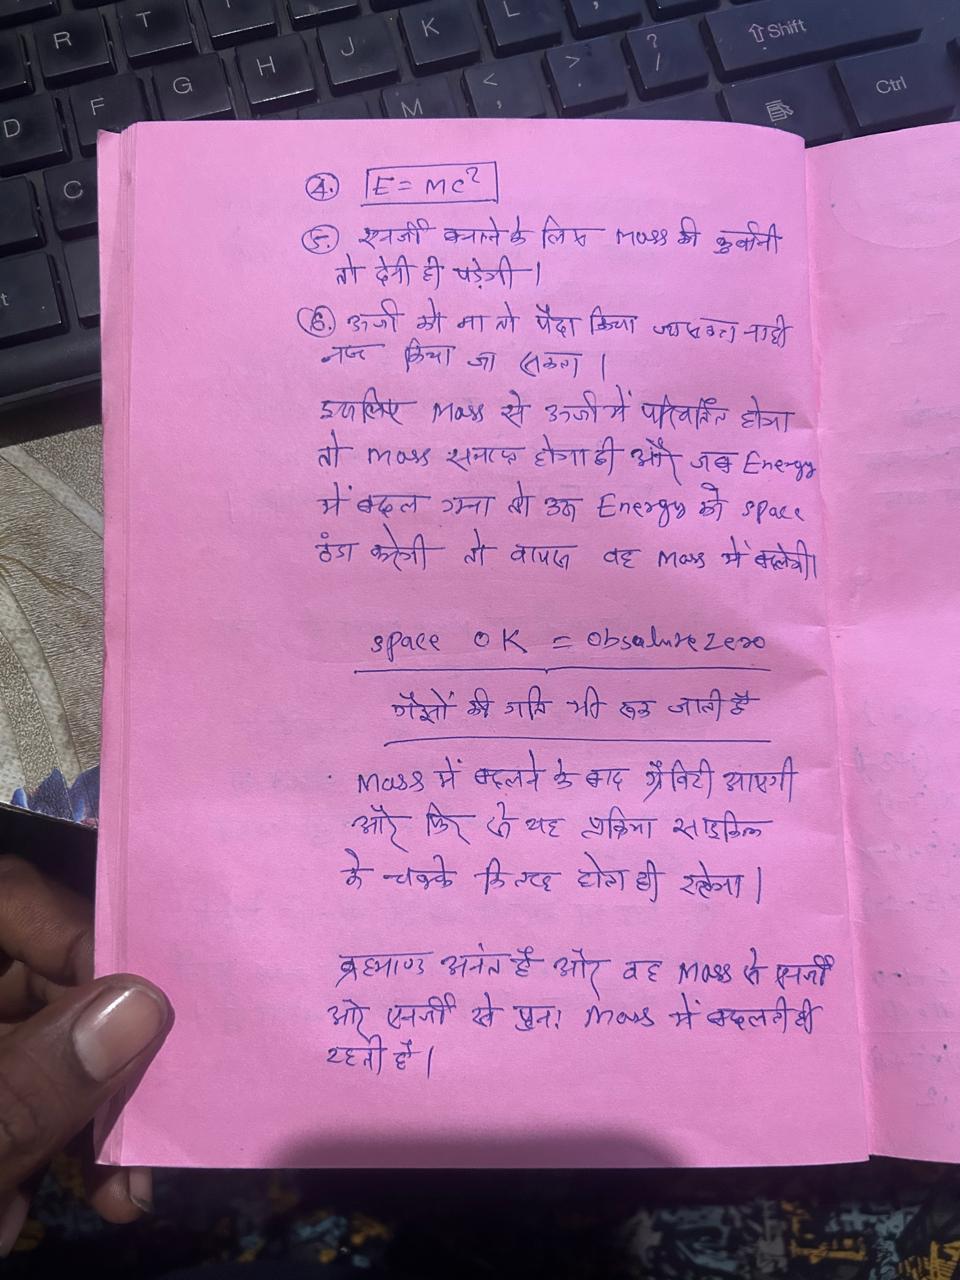 R
T
L
J
K
G
H
D
F
M
<
,
>
.
?
/
⇧Shift
Ctrl
C
t
4. E = MC²
5. एनर्जी बनाने के लिए Mass की कुर्बानी
तो देनी ही पड़ेगी।
6. ऊर्जा को ना तो पैदा किया जा सकता नाही
नष्ट किया जा सकता।
इसलिए Mass से ऊर्जा में परिवर्तित होगा
तो Mass समाप्त होगा ही और जब Energy
में बदल गया तो उस Energy को space
ठंडा करेगी तो वापस वह Mass में बदलेगी।
space 0 K = Obsalute Zero
गैसों की गति भी रूक जाती है
Mass में बदलने के बाद ग्रैविटी आएगी
और फिर से यह प्रक्रिया साइकिल
के चक्के कि तरह होता ही रहेगा।
ब्रह्माण्ड अनंत है और वह Mass से एनर्जी
और एनर्जी से पुनः Mass में बदलती ही
रहती है।